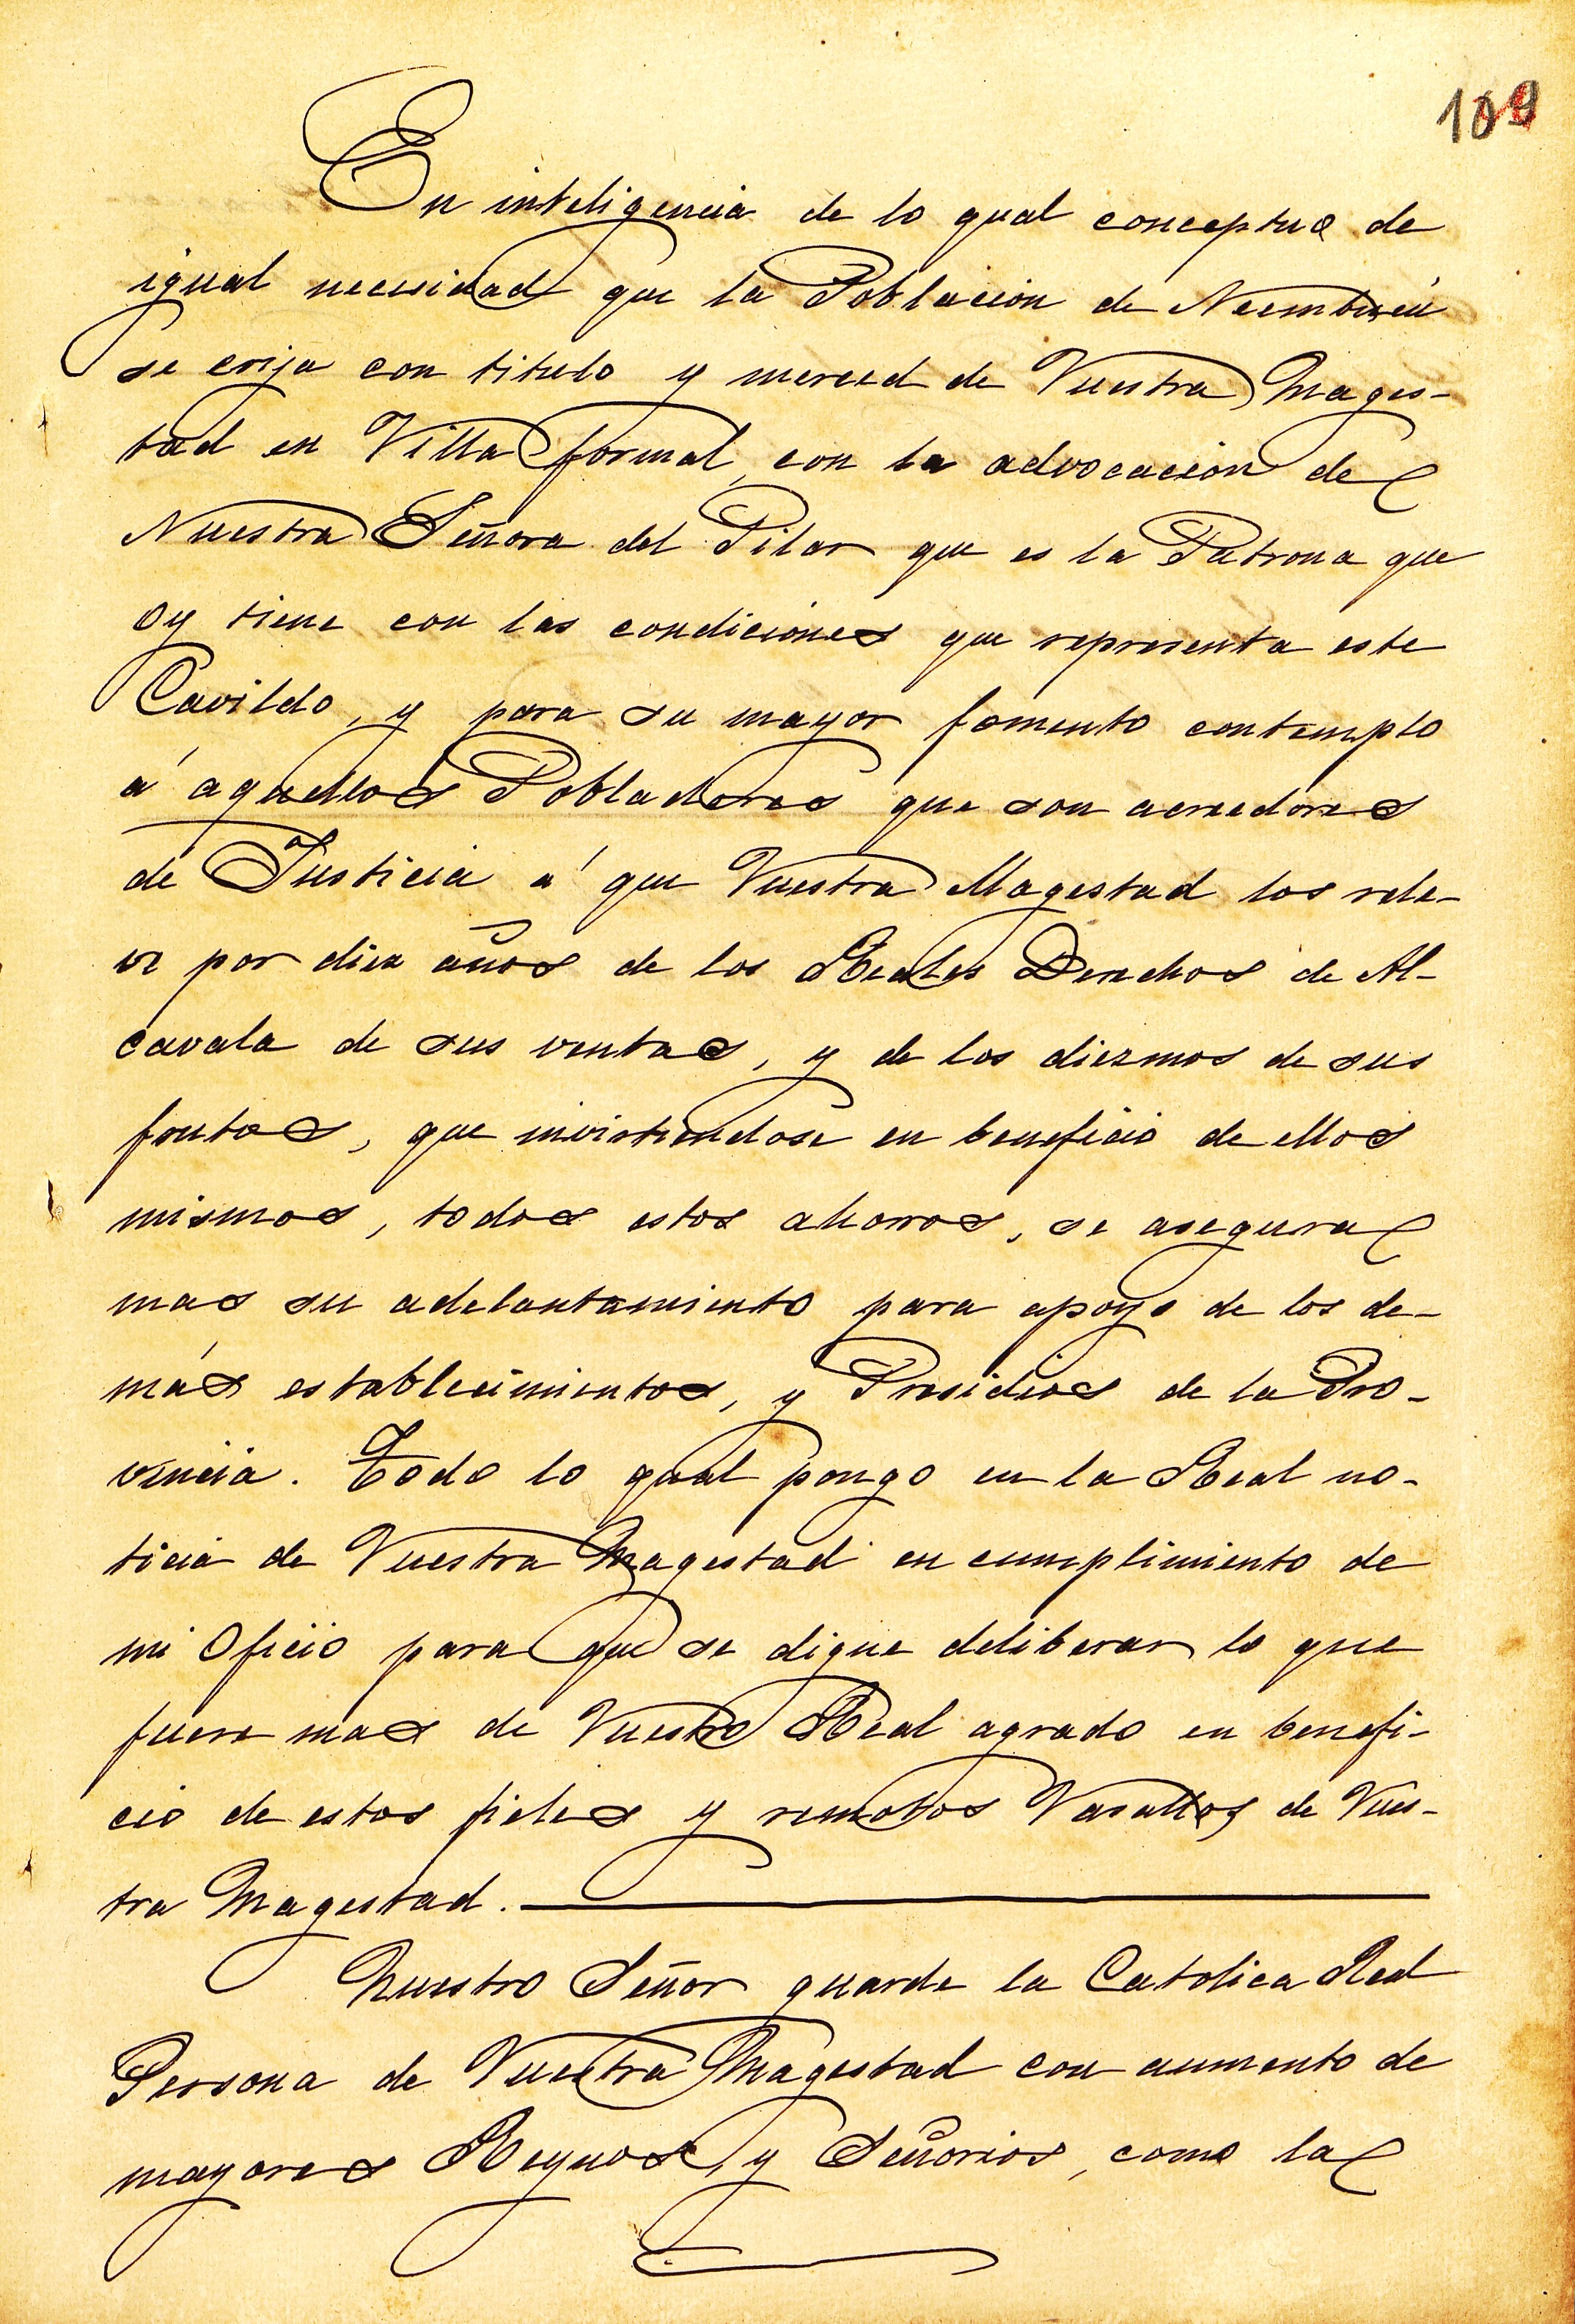 109
En inteligencia de lo qual conceptuo de
igual necesidad que la Poblacion de Neembucú
se erija con titulo y merced de Vuestra Mages-
tad en Villa formal, con la advocacion de
Nuestra Señora del Pilar que es la Patrona que
oy tiene con las condiciones que representa este
Cavildo, y para su mayor fomento contemplo
á aquellos Pobladores que son acreedores
de Justicia á que Vuestra Magestad los rele-
ve por diez años de los Reales Derechos de Al-
cavala de sus ventas, y de los diezmos de sus
frutos, que invirtiendose en beneficio de ellos
mismos, todos estos ahorros, se asegura
mas su adelantamiento para apoyo de los de-
más establecimientos, y Presidios de la Pro-
vincia. Todo lo qual pongo en la Real no-
ticia de Vuestra Magestad en cumplimiento de
mi Oficio para que se digne deliberar lo que
fuere mas de Vuestro Real agrado en benefi-
cio de estos fieles y remotos Vasallos de Vues-
tra Magestad.
Nuestro Señor guarde la Catolica Real
Persona de Vuestra Magestad con aumento de
mayores Reynos, y Señorios, como la